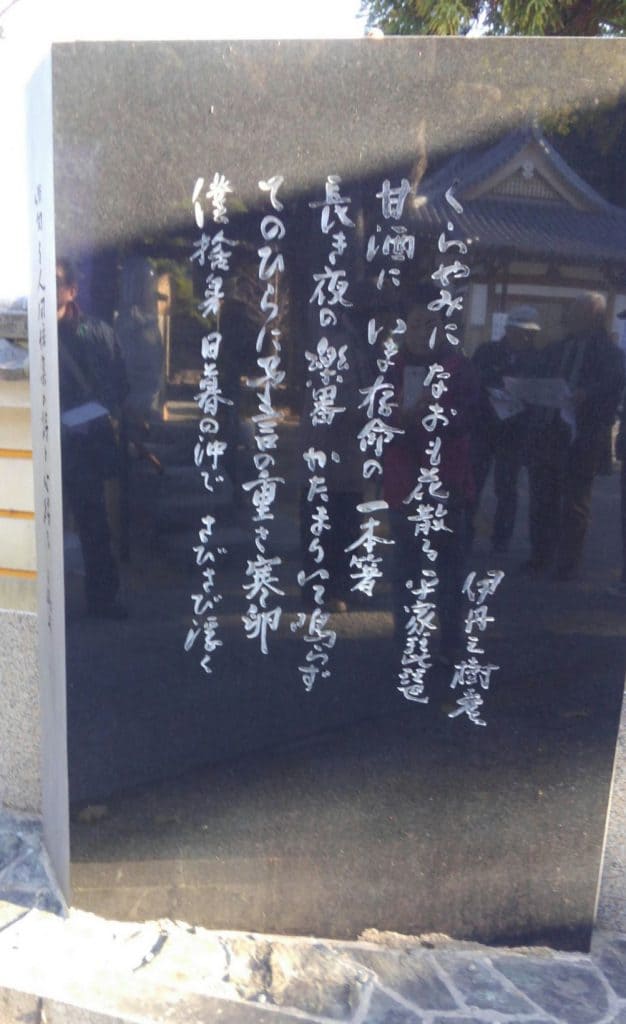 伊丹三樹彦
くらやみになおも花散る平家琵琶
甘酒に いま存命の 一本箸
長き夜の楽器 かたまりいて鳴らず
てのひらに予言の重さ寒卵
僕捨舟 日暮の沖で さびさび浮く